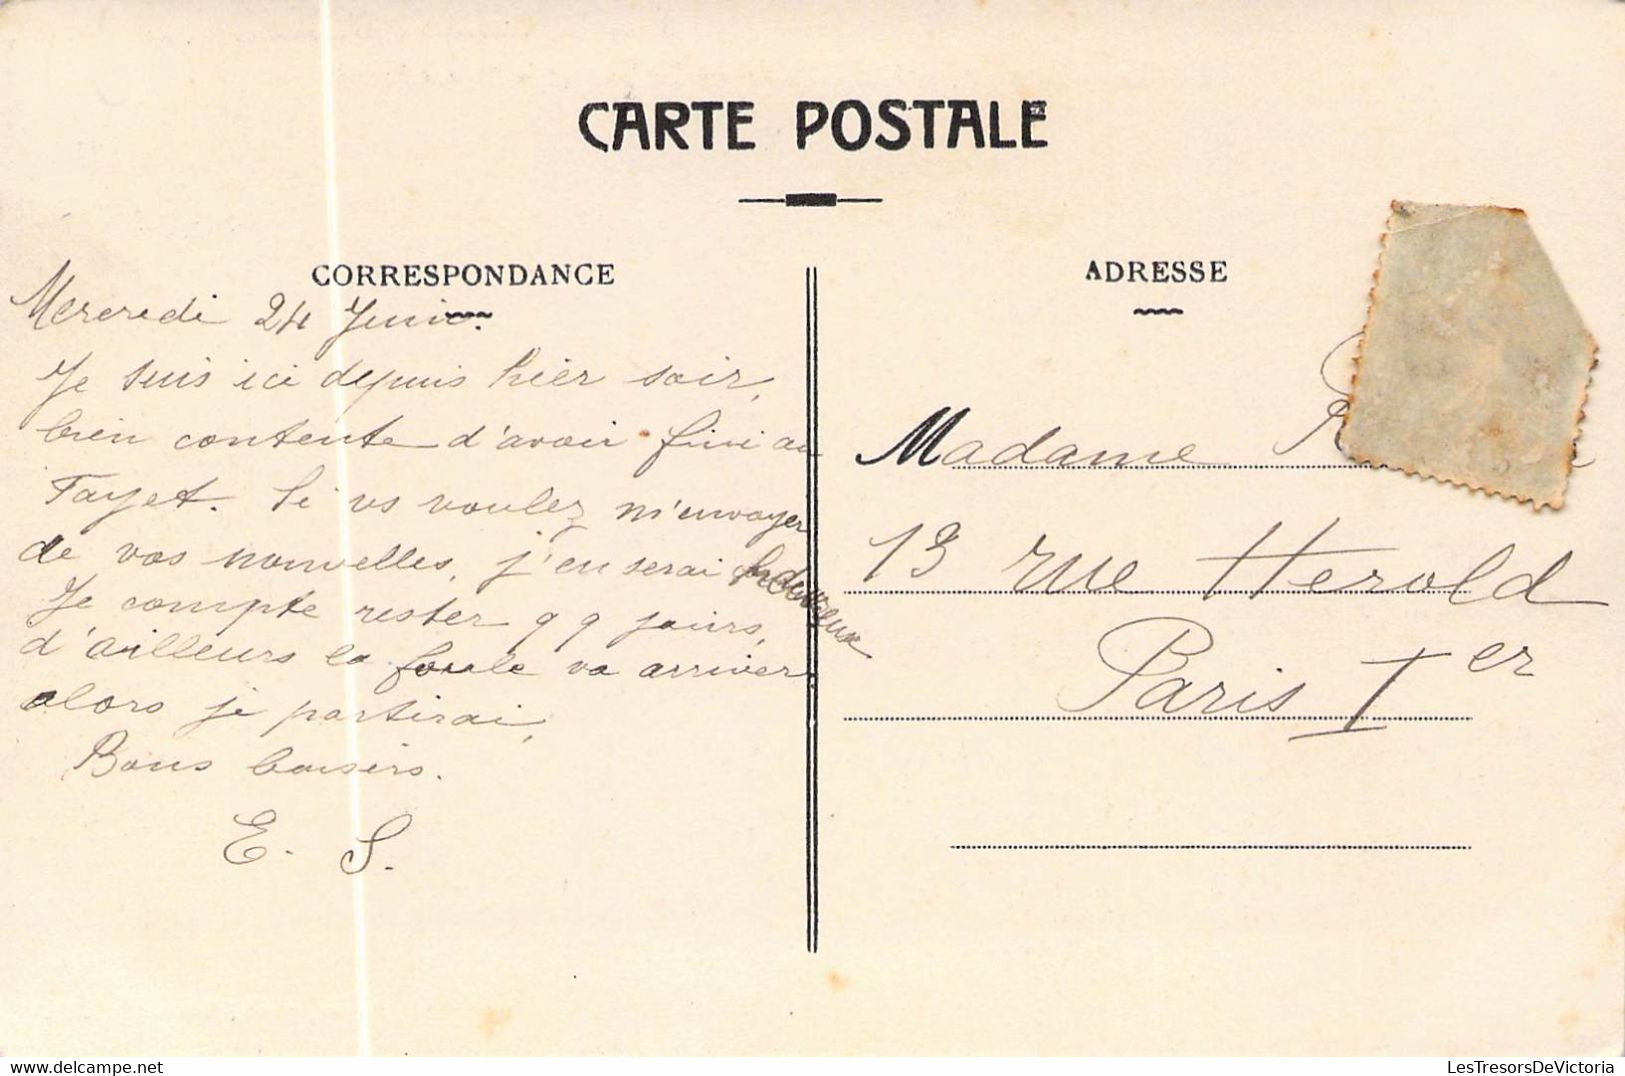 CARTE POSTALE
CORRESPONDANCE
Mercredi 24 Juin.
Je suis ici depuis hier soir,
bien contente d'avoir fini au
Fayet. Si vs voulez m'envoyer
de vos nouvelles, j'en serai
Je compte rester qq jours,
d'ailleurs la foule va arriver
alors je partirai,
Bons baisers.
E. S.
ADRESSE
Madame
13 rue Herold
Paris Ier
LesTresorsDeVictoria